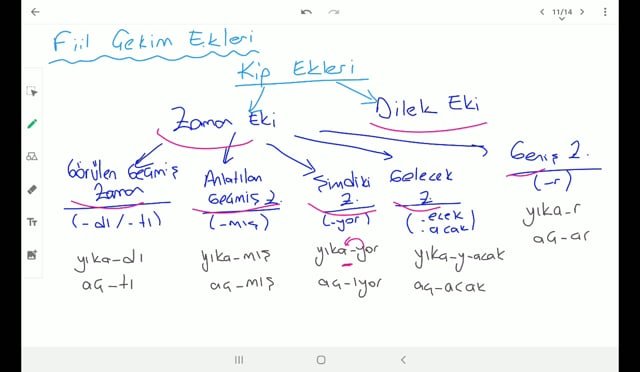 11/14
Fiil Çekim Ekleri
Kip Ekleri
Zaman Eki
Dilek Eki
Görülen Geçmiş
Zaman
(-dı/-tı)
yıka-dı
aç-tı
Anlatılan
Geçmiş Z.
(-mış)
yıka-mış
aç-mış
Şimdiki
Z.
(-yor)
yıka-yor
aç-ıyor
Gelecek
Z.
(-ecek
-acak)
yıka-y-acak
aç-acak
Geniş Z.
(-r)
yıka-r
aç-ar
TT